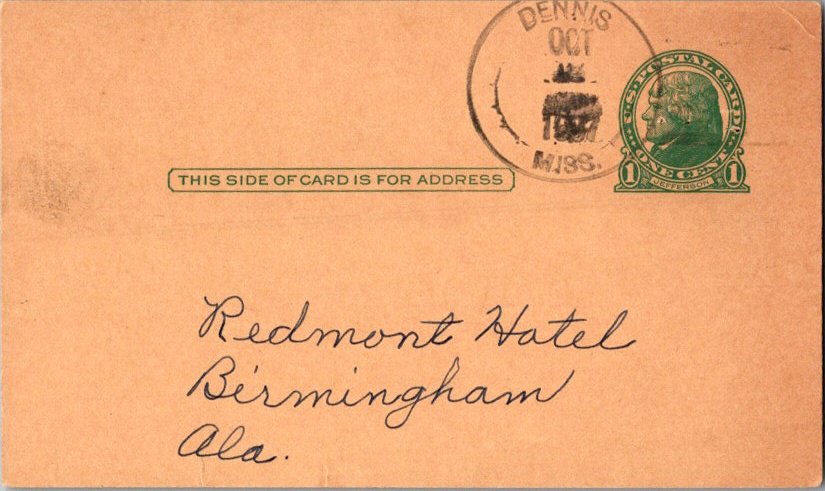 DENNIS
OCT
MISS.
U.S. POSTAL CARD
ONE CENT
1 JEFFERSON 1
THIS SIDE OF CARD IS FOR ADDRESS
Redmont Hotel
Birmingham
Ala.